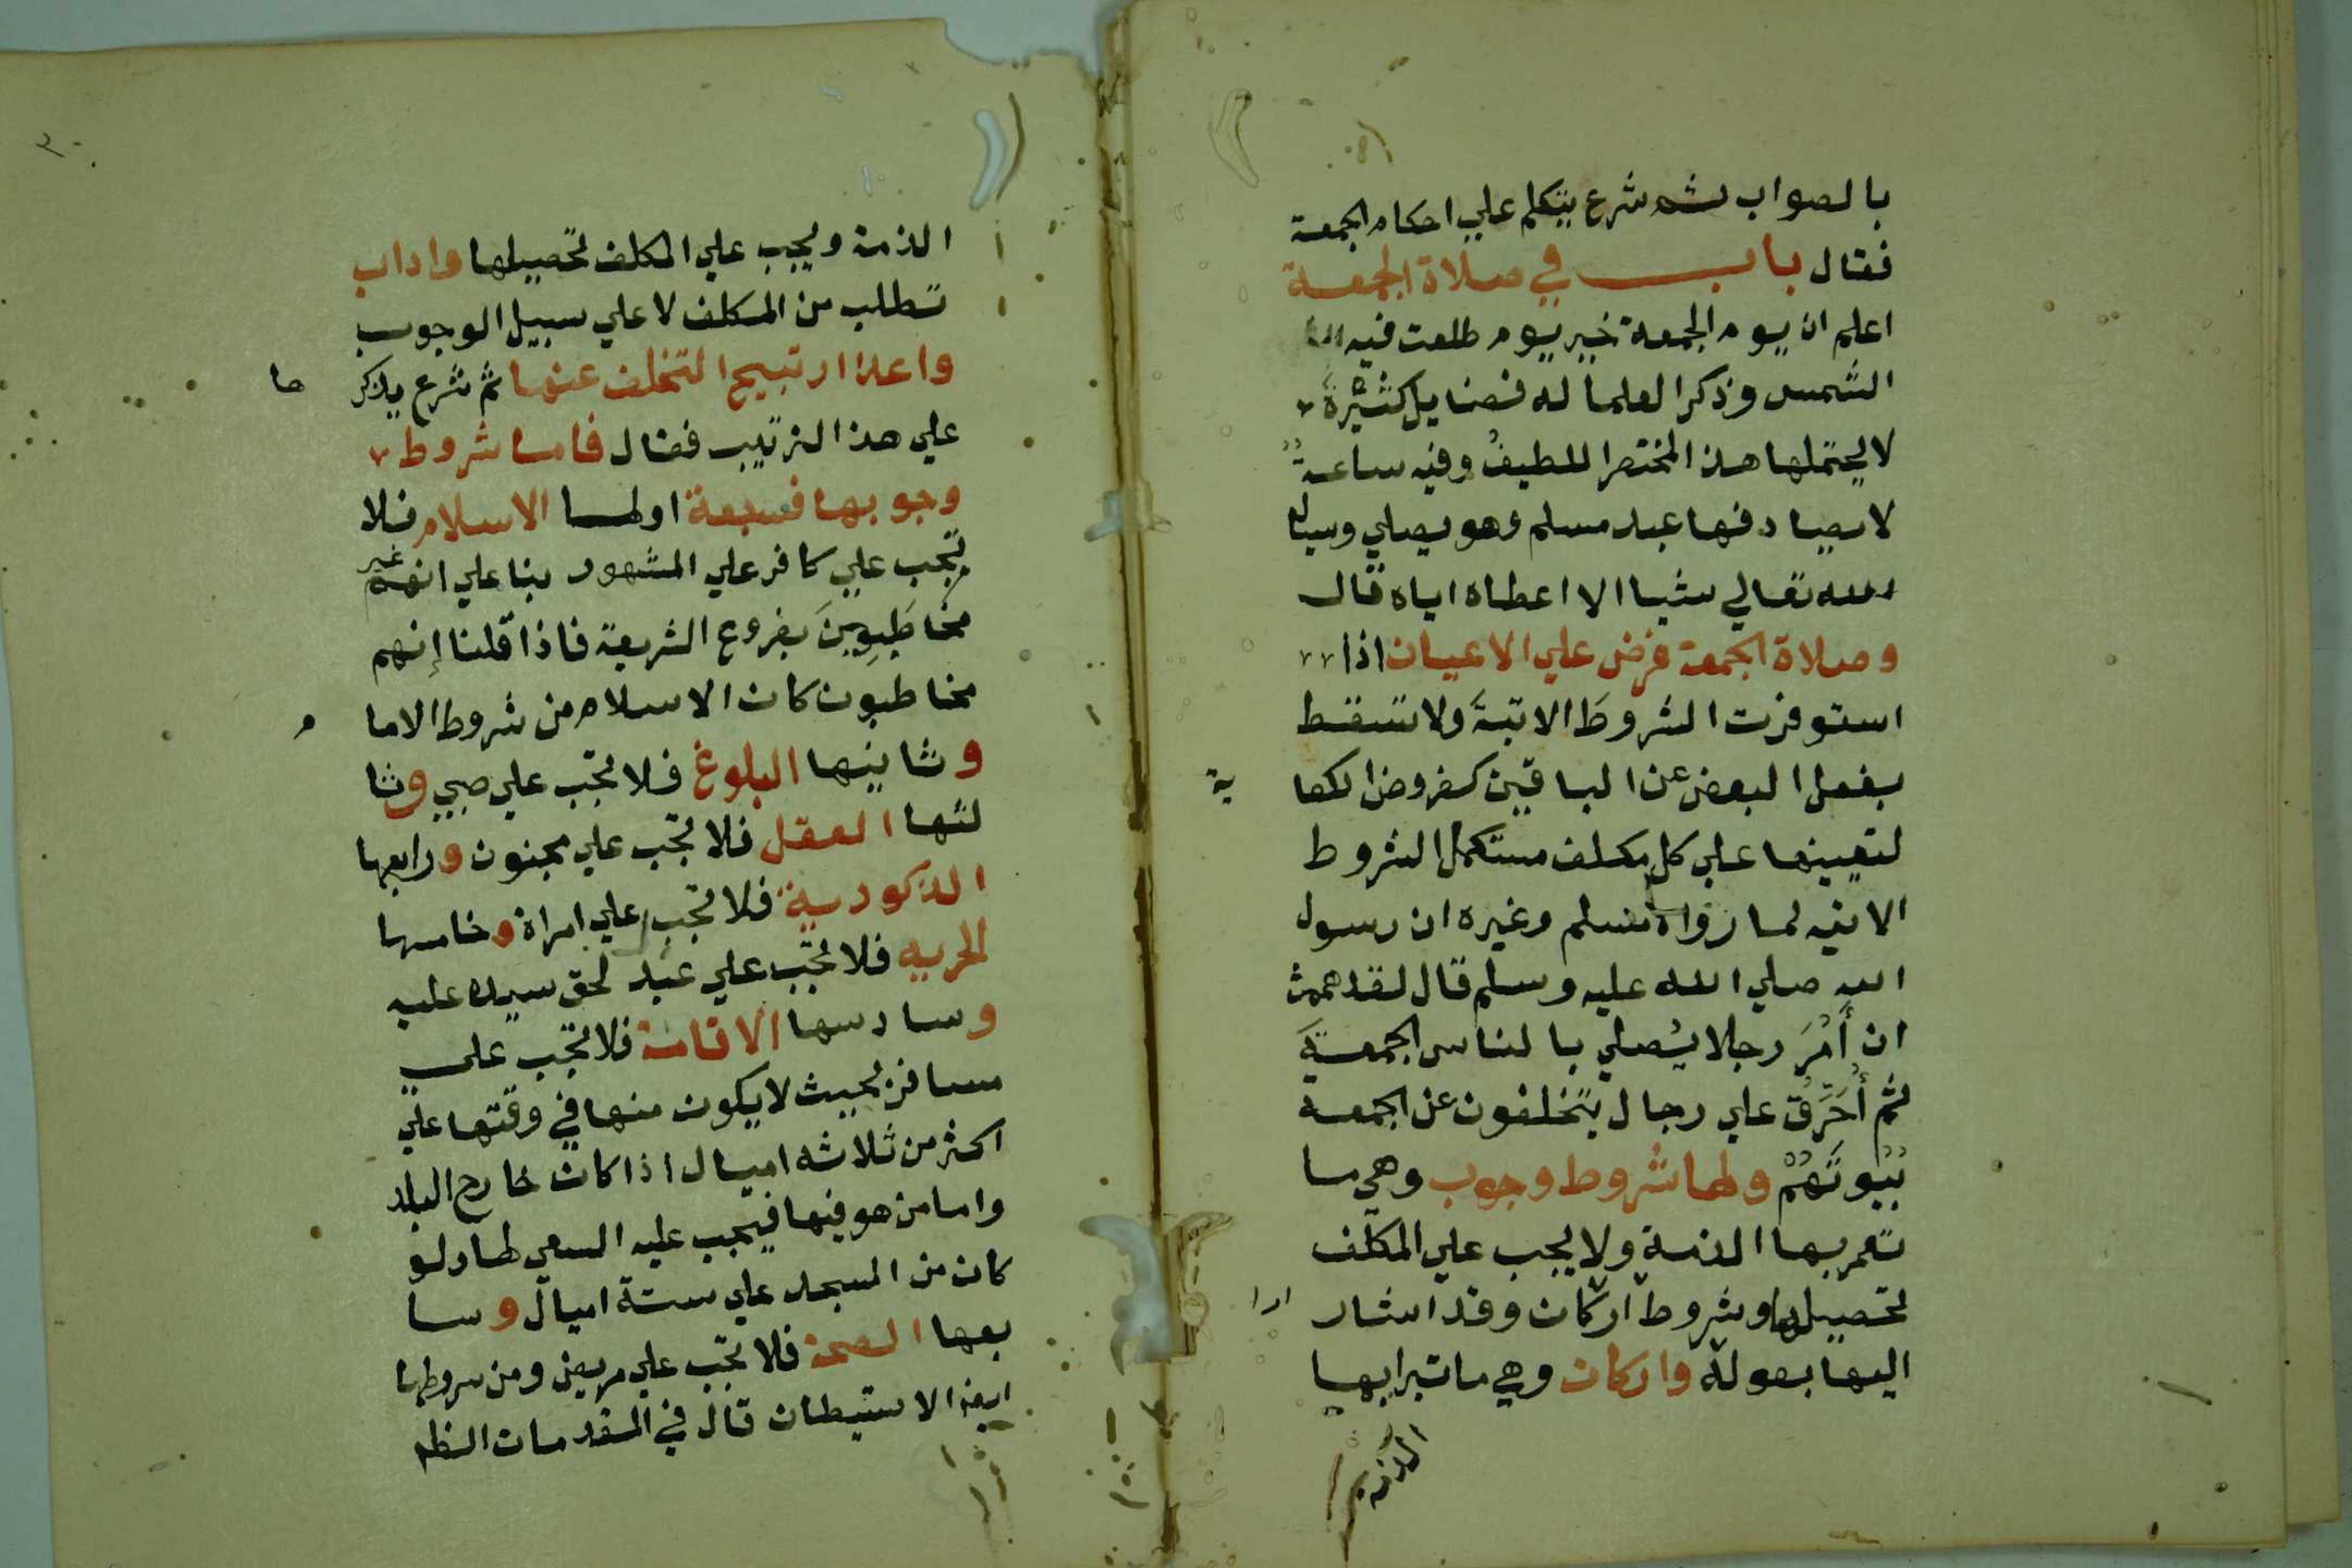 بالصواب ثم شرع يتكلم علي احكام الجمعة
فقال باب في صلاة الجمعة
اعلم ان يوم الجمعة خير يوم طلعت فيه
الشمس وذكر العلما له فضايل كثيرة
لا يحتملها هذا المختصر اللطيف وفيه ساعة
لا يصادفها عبد مسلم وهو يصلي وسال
الله تعالي شيا الا اعطاه اياه قال
وصلاة الجمعة فرض علي الاعيان اذا
استوفرت الشروط الاتية ولا تسقط
بفعل البعض عن الباقين كفروض الكفا ية
لتعينها علي كل مكلف مستكمل الشروط
الاتيه لما رواه مسلم وغيره ان رسول
الله صلي الله عليه وسلم قال لقد هممت
ان أمُرَ رجلا يُصلي بالناس الجمعةَ
ثم أُحَرِّقُ علي رجال يتخلفون عن الجمعة
بُيُوتَهُمْ ولها شروط وجوب وهي ما
تعمر بها الذمة ولا يجب علي المكلف
تحصيلها وشروط اركان وقد اشار ادا
اليها بقوله واركان وهي ما تبرا بها
الذمة
٣٠
الذمة ويجب علي المكلف تحصيلها واداب
تطلب من المكلف لا علي سبيل الوجوب
واعذار تبيح التخلف عنها ثم شرع يذكر ها
علي هذا الترتيب فقال فاما شروط
وجوبها فسبعة اولها الاسلام فلا
تجب علي كافر علي المشهور بنا علي انهم غير
مخاطَبِوينَ بفروع الشريعة فاذا قلنا إنهم
مخاطبون كان الاسلام من شروط الادا م
وثانيها البلوغ فلا تجب علي صبي وثا
لثها العقل فلا تجب علي مجنون ورابعها
الذكورية فلا تجب علي امراة وخامسها
الحريه فلا تجب علي عبد لحق سيده عليه
وسادسها الاقامة فلا تجب علي
مسافر بحيث لا يكون منها في وقتها علي
اكثر من ثلاثه اميال اذا كان خارج البلد
واما من هو فيها فيجب عليه السعي لها ولو
كان من المسجد علي ستة اميال وسا
بعها الصحة فلا تجب علي مريض ومن شروطها
ايضا الاستيطان قال في المقدمات الظم